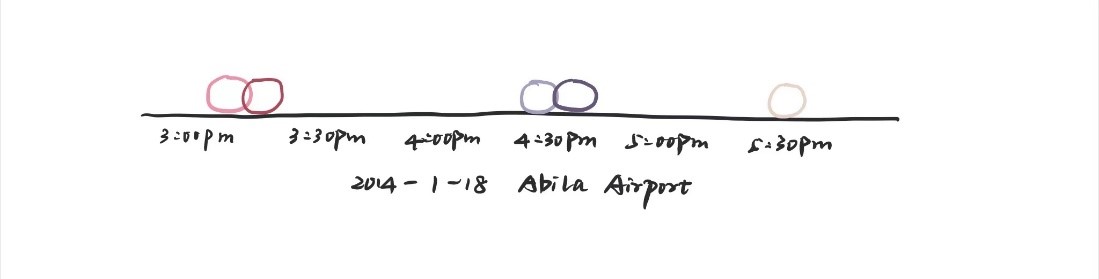 3:00pm 3:30pm 4:00pm 4:30pm 5:00pm 5:30pm
2014-1-18 Abila Airport